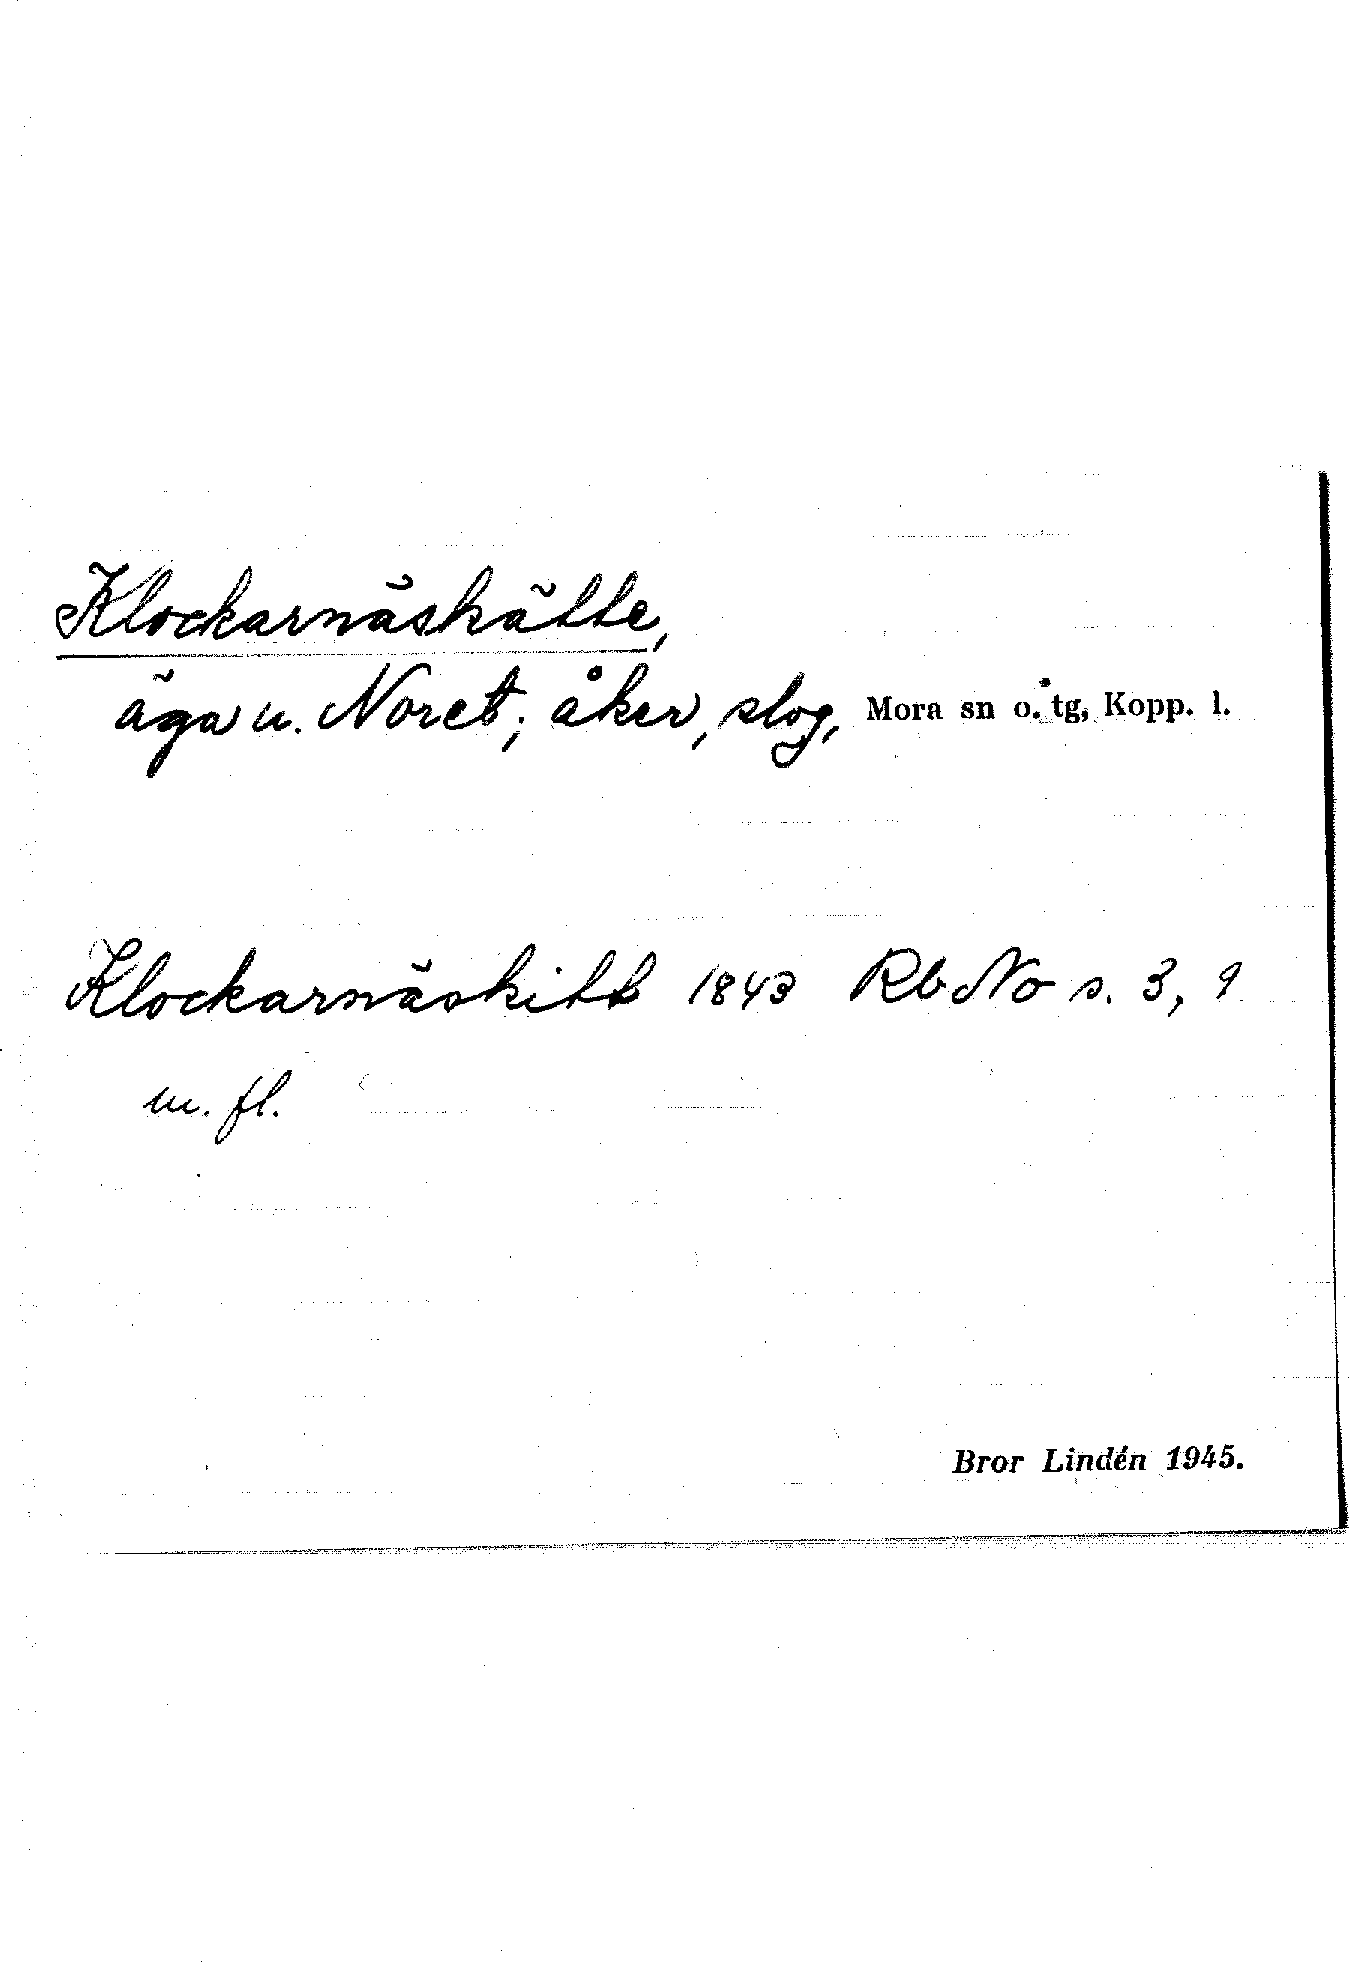 Klockarnäskätte,
äga u. Noret; åker, slog, Mora sn o. tg, Kopp. l.
Klockarnäskitt 1843 Rb No s. 3, 9
m. fl.
Bror Lindén 1945.